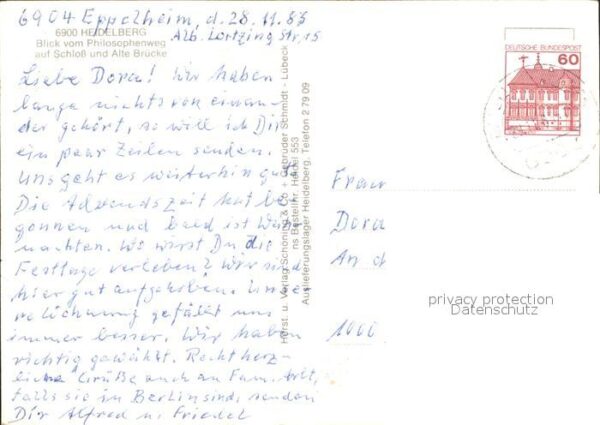 6904 Eppelheim, d. 28.11.83
Alb. Lortzing Str. 15
6900 HEIDELBERG
Blick vom Philosophenweg
auf Schloß und Alte Brücke
Liebe Dora! Wir haben
lange nichts von einan-
der gehört, so will ich Dir
ein paar Zeilen senden.
Uns geht es weiterhin gut.
Die Adventszeit hat be-
gonnen und bald ist Weih-
nachten. Wo wirst Du die
Festtage verleben? Wir sind
hier gut aufgehoben. Unsere
Wohnung gefällt uns
immer besser. Wir haben
richtig gewählt. Recht herz-
liche Grüße auch an Fam.
falls sie in Berlin sind, senden
Dir Alfred u. Friedel
Horst. u. Verlag Schöning & Co + Gebrüder Schmidt - Lübeck
Bestellnr. Heidel 553
Auslieferungslager Heidelberg, Telefon 2 79 09
DEUTSCHE BUNDESPOST
60
Frau
Dora
An d
1000
privacy protection
Datenschutz